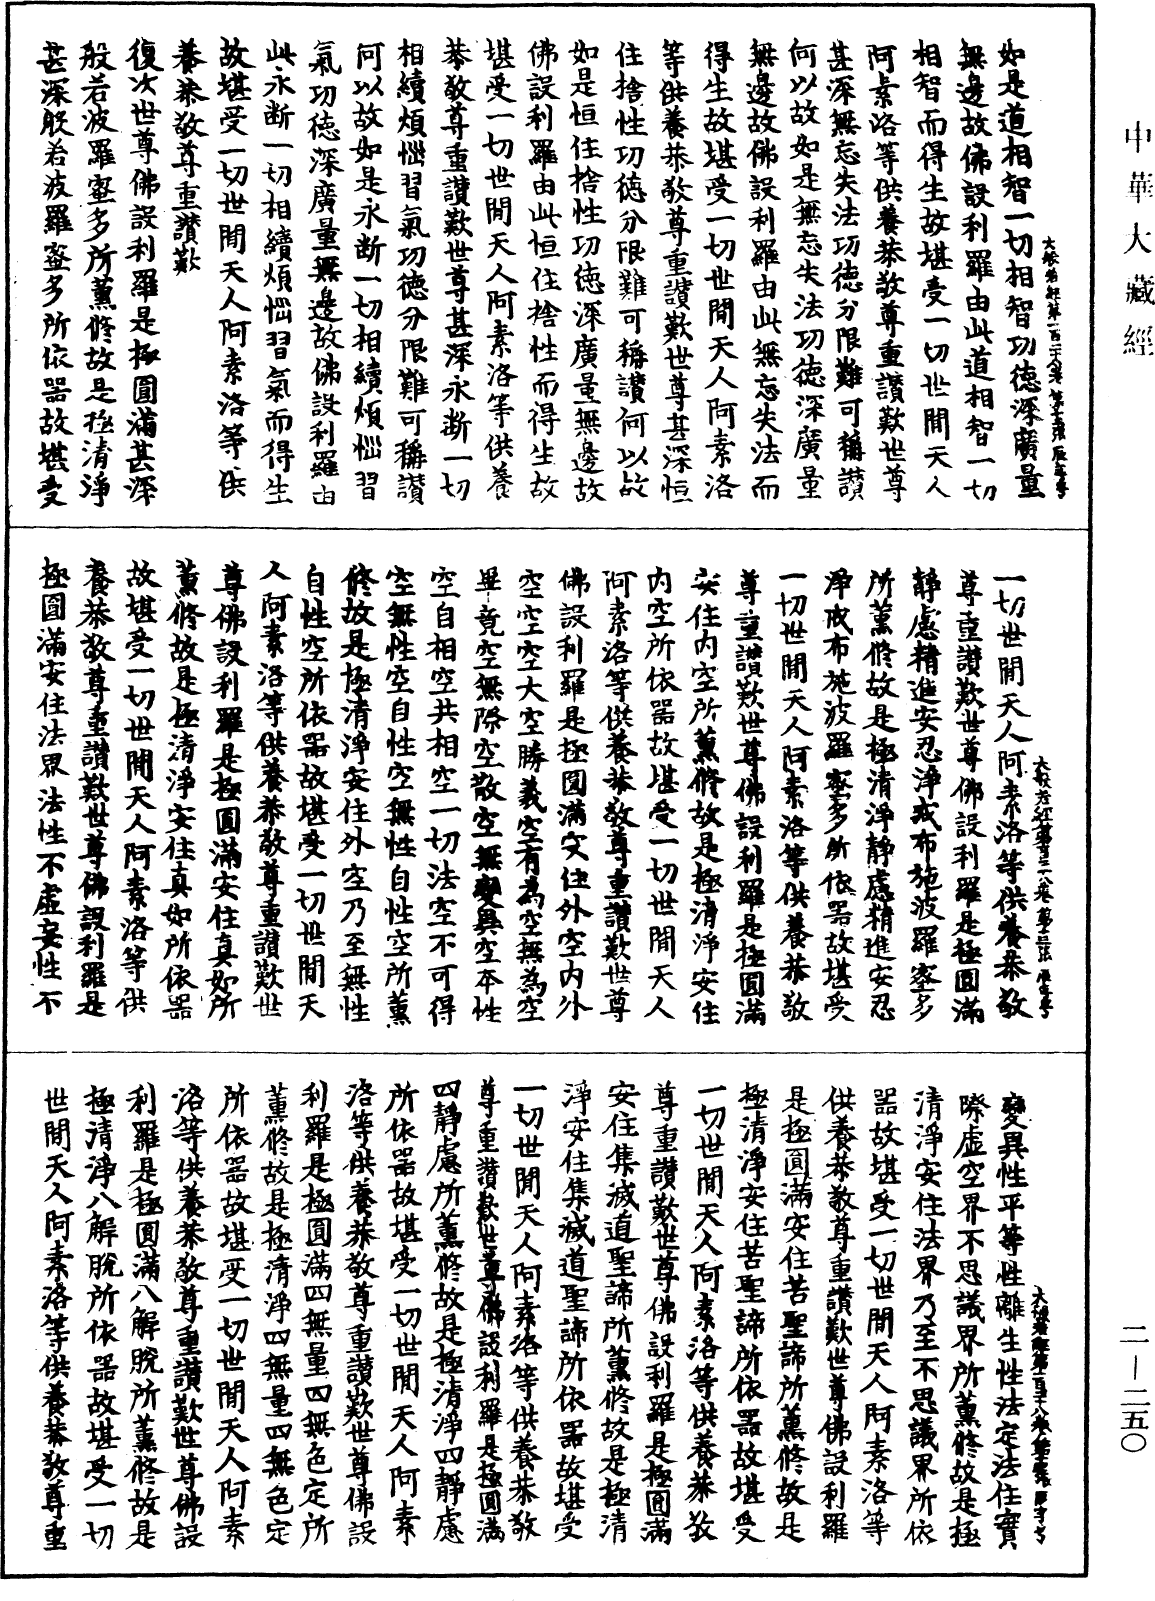 中華大藏經
如是道相智一切相智功德深廣量
無邊故佛設利羅由此道相智一切
相智而得生故堪受一切世間天人
阿素洛等供養恭敬尊重讚歎世尊
甚深無忘失法功德分限難可稱讚
何以故如是無忘失法功德深廣量
無邊故佛設利羅由此無忘失法而
得生故堪受一切世間天人阿素洛
等供養恭敬尊重讚歎世尊甚深恒
住捨性功德分限難可稱讚何以故
如是恒住捨性功德深廣量無邊故
佛設利羅由此恒住捨性而得生故
堪受一切世間天人阿素洛等供養
恭敬尊重讚歎世尊甚深永斷一切
相續煩惱習氣功德分限難可稱讚
何以故如是永斷一切相續煩惱習
氣功德深廣量無邊故佛設利羅由
此永斷一切相續煩惱習氣而得生
故堪受一切世間天人阿素洛等供
養恭敬尊重讚歎
復次世尊佛設利羅是極圓滿甚深
般若波羅蜜多所薰修故是極清淨
甚深般若波羅蜜多所依器故堪受
一切世間天人阿素洛等供養恭敬
尊重讚歎世尊佛設利羅是極圓滿
靜慮精進安忍淨戒布施波羅蜜多
所薰修故是極清淨靜慮精進安忍
淨戒布施波羅蜜多所依器故堪受
一切世間天人阿素洛等供養恭敬
尊重讚歎世尊佛設利羅是極圓滿
安住內空所薰修故是極清淨安住
內空所依器故堪受一切世間天人
阿素洛等供養恭敬尊重讚歎世尊
佛設利羅是極圓滿安住外空內外
空空空大空勝義空有為空無為空
畢竟空無際空散空無變異空本性
空自相空共相空一切法空不可得
空無性空自性空無性自性空所薰
修故是極清淨安住外空乃至無性
自性空所依器故堪受一切世間天
人阿素洛等供養恭敬尊重讚歎世
尊佛設利羅是極圓滿安住真如所
薰修故是極清淨安住真如所依器
故堪受一切世間天人阿素洛等供
養恭敬尊重讚歎世尊佛設利羅是
極圓滿安住法界法性不虛妄性不
變異性平等性離生性法定法住實
際虛空界不思議界所薰修故是極
清淨安住法界乃至不思議界所依
器故堪受一切世間天人阿素洛等
供養恭敬尊重讚歎世尊佛設利羅
是極圓滿安住苦聖諦所薰修故是
極清淨安住苦聖諦所依器故堪受
一切世間天人阿素洛等供養恭敬
尊重讚歎世尊佛設利羅是極圓滿
安住集滅道聖諦所薰修故是極清
淨安住集滅道聖諦所依器故堪受
一切世間天人阿素洛等供養恭敬
尊重讚歎世尊佛設利羅是極圓滿
四靜慮所薰修故是極清淨四靜慮
所依器故堪受一切世間天人阿素
洛等供養恭敬尊重讚歎世尊佛設
利羅是極圓滿四無量四無色定所
薰修故是極清淨四無量四無色定
所依器故堪受一切世間天人阿素
洛等供養恭敬尊重讚歎世尊佛設
利羅是極圓滿八解脫所薰修故是
極清淨八解脫所依器故堪受一切
世間天人阿素洛等供養恭敬尊重
二—二五〇